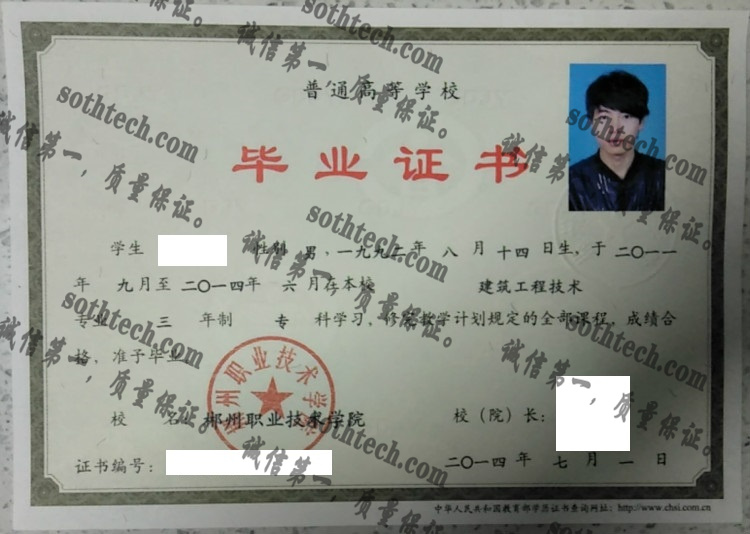 普通高等学校
毕业证书
学生 性别 男,一九九二年 八 月 十四 日生,于 二〇一一
年 九月至 二〇一四年 六 月在本校 建筑工程技术
专业 三 年制 专 科学习,修完教学计划规定的全部课程,成绩合
格,准予毕业
郴州职业技术学院
校 名 郴州职业技术学院 校(院)长:
证书编号: 二〇一四年 七 月 一 日
中华人民共和国教育部学历证书查询网址:http://www.chsi.com.cn
sothtech.com
诚信第一,质量保证。
sothtech.com
诚信第一,质量保证。
sothtech.com
诚信第一,质量保证。
sothtech.com
诚信第一,质量保证。
sothtech.com
诚信第一,质量保证。
sothtech.com
诚信第一,质量保证。
sothtech.com
诚信第一,质量保证。